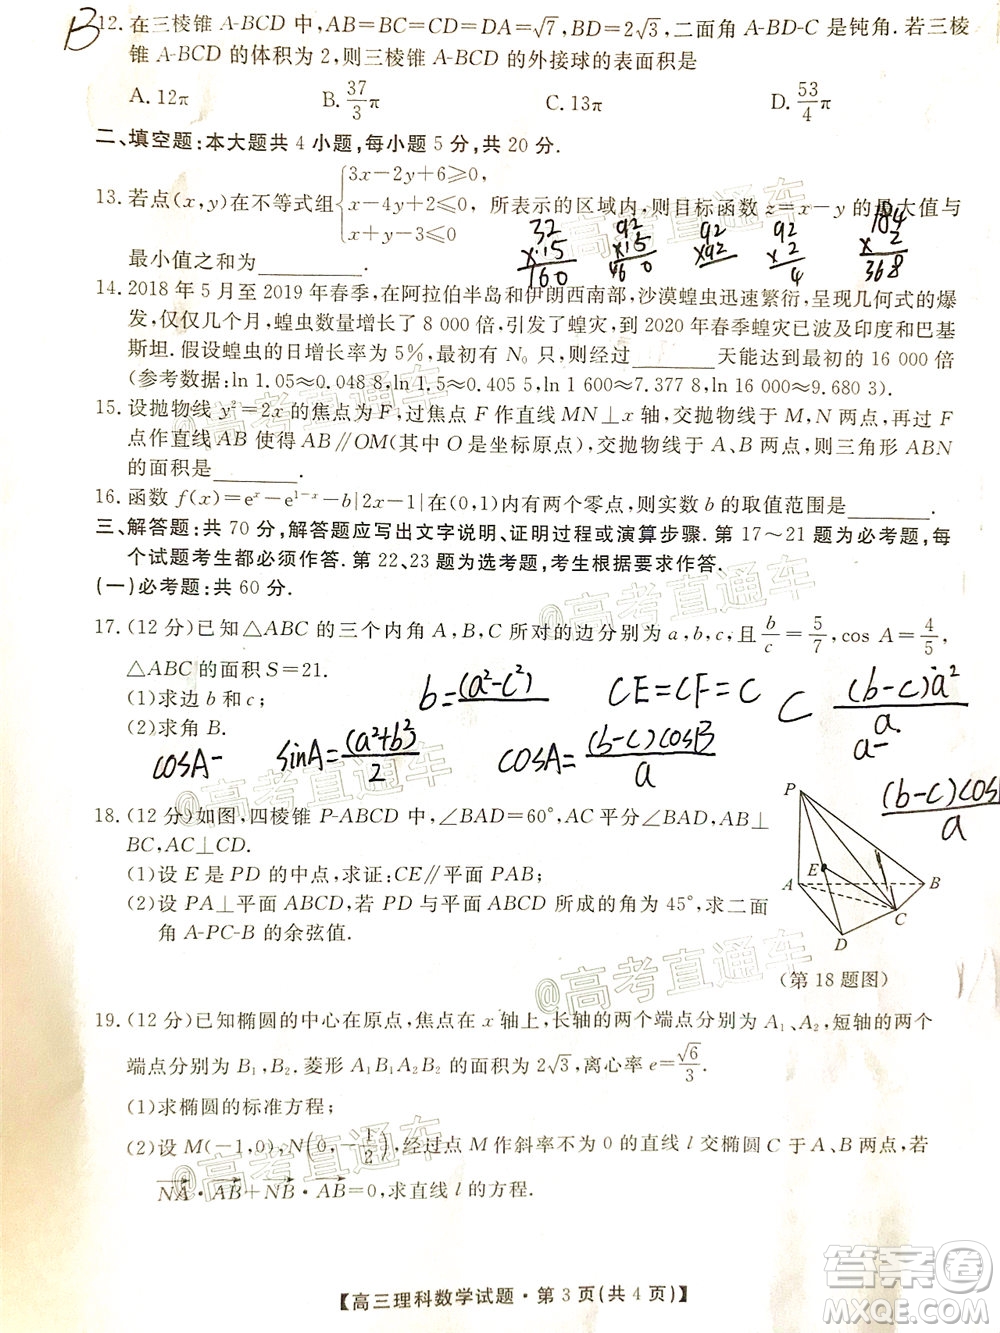 B
12. 在三棱锥 A-BCD 中,AB=BC=CD=DA=√7,BD=2√3,二面角 A-BD-C 是钝角.若三棱
锥 A-BCD 的体积为 2,则三棱锥 A-BCD 的外接球的表面积是
A. 12π B. 37/3 π C. 13π D. 53/4 π
二、填空题:本大题共 4 小题,每小题 5 分,共 20 分.
13. 若点(x,y)在不等式组{3x-2y+6≥0, x-4y+2≤0, x+y-3≤0 所表示的区域内,则目标函数 z=x-y 的最大值与
最小值之和为
32 ×15 160
92 ×15 460
92 ×92
92 ×2 4
184 ×2 368
14. 2018 年 5 月至 2019 年春季,在阿拉伯半岛和伊朗西南部,沙漠蝗虫迅速繁衍,呈现几何式的爆
发,仅仅几个月,蝗虫数量增长了 8 000 倍,引发了蝗灾,到 2020 年春季蝗灾已波及印度和巴基
斯坦.假设蝗虫的日增长率为 5%,最初有 N₀ 只,则经过 天能达到最初的 16 000 倍
(参考数据:ln 1.05≈0.048 8,ln 1.5≈0.405 5,ln 1 600≈7.377 8,ln 16 000≈9.680 3).
15. 设抛物线 y²=2x 的焦点为 F,过焦点 F 作直线 MN⊥x 轴,交抛物线于 M,N 两点,再过 F
点作直线 AB 使得 AB∥OM(其中 O 是坐标原点),交抛物线于 A、B 两点,则三角形 ABN
的面积是
16. 函数 f(x)=eˣ-e¹⁻ˣ-b|2x-1|在(0,1)内有两个零点,则实数 b 的取值范围是
三、解答题:共 70 分,解答题应写出文字说明、证明过程或演算步骤.第 17～21 题为必考题,每
个试题考生都必须作答.第 22、23 题为选考题,考生根据要求作答.
(一)必考题:共 60 分.
17. (12 分)已知△ABC 的三个内角 A,B,C 所对的边分别为 a,b,c,且 b/c=5/7,cos A=4/5,
△ABC 的面积 S=21.
(1)求边 b 和 c;
(2)求角 B.
b=(a²-c²)
CE=CF=C
C (b-c)a²/a
a-
cosA-
sinA=(a²+b²)/2
cosA=(b-c)cosB/a
(b-c)cos/a
18. (12 分)如图,四棱锥 P-ABCD 中,∠BAD=60°,AC 平分∠BAD,AB⊥
BC,AC⊥CD.
(1)设 E 是 PD 的中点,求证:CE∥平面 PAB;
(2)设 PA⊥平面 ABCD,若 PD 与平面 ABCD 所成的角为 45°,求二面
角 A-PC-B 的余弦值.
P
E
A
B
C
D
(第 18 题图)
19. (12 分)已知椭圆的中心在原点,焦点在 x 轴上,长轴的两个端点分别为 A₁、A₂,短轴的两个
端点分别为 B₁,B₂.菱形 A₁B₁A₂B₂ 的面积为 2√3,离心率 e=√6/3.
(1)求椭圆的标准方程;
(2)设 M(-1,0),N(0,-1/2),经过点 M 作斜率不为 0 的直线 l 交椭圆 C 于 A、B 两点,若
NA·AB+NB·AB=0,求直线 l 的方程.
【高三理科数学试题·第 3 页(共 4 页)】
@高考直通车
@高考直通车
@高考直通车
@高考直通车
@高考直通车
答案圈
MXQE.COM